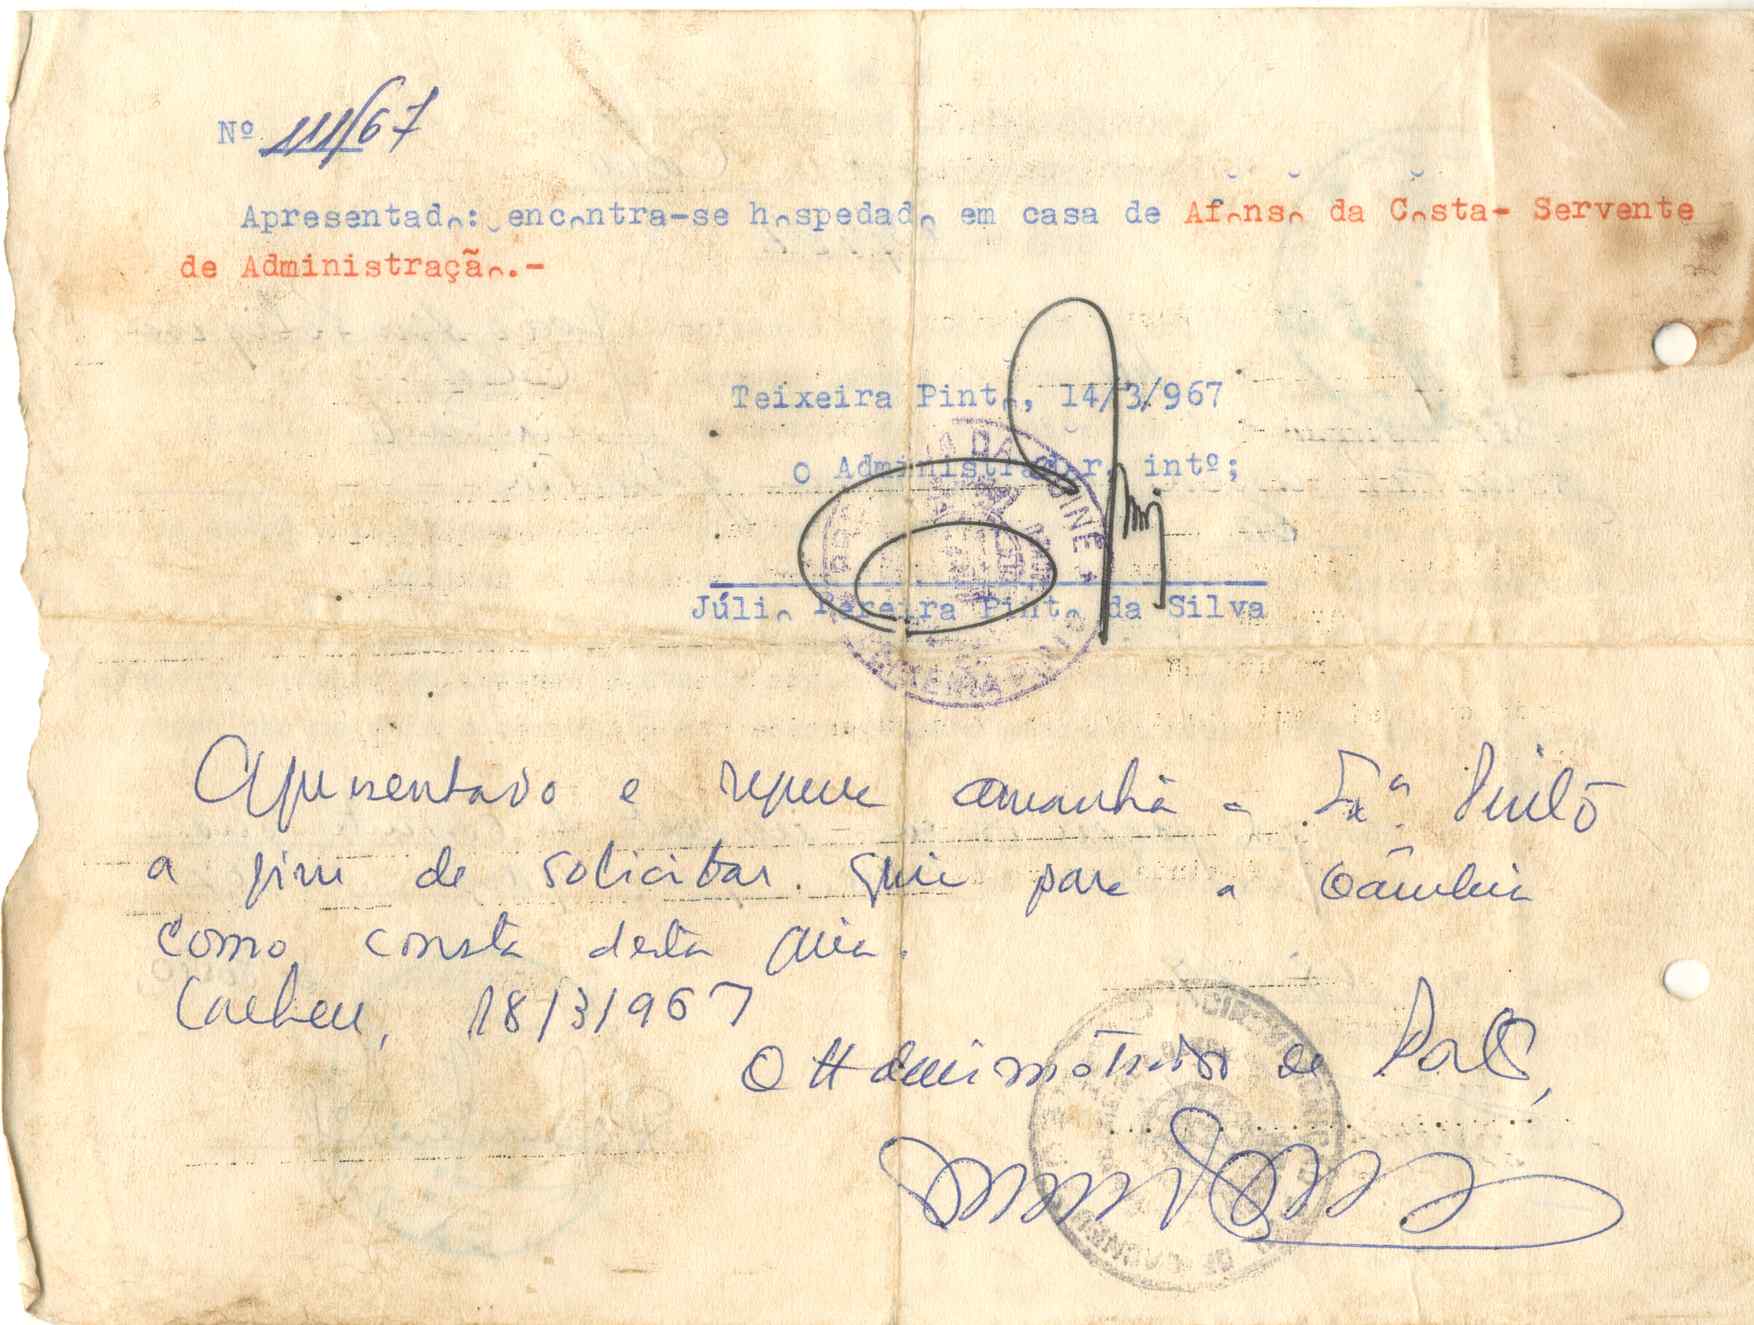 Nº 111/67
Apresentado: encontra-se hospedado em casa de Afonso da Costa- Servente
de Administração.-
Teixeira Pinto, 14/3/967
O Administrador, intº;
Júlio Pereira Pinto da Silva
Apresentado e regressa amanhã a Txª Pinto
a fim de solicitar guia para a Gâmbia
como consta desta guia.
Cacheu, 18/3/1967
O Administrador de Posto,